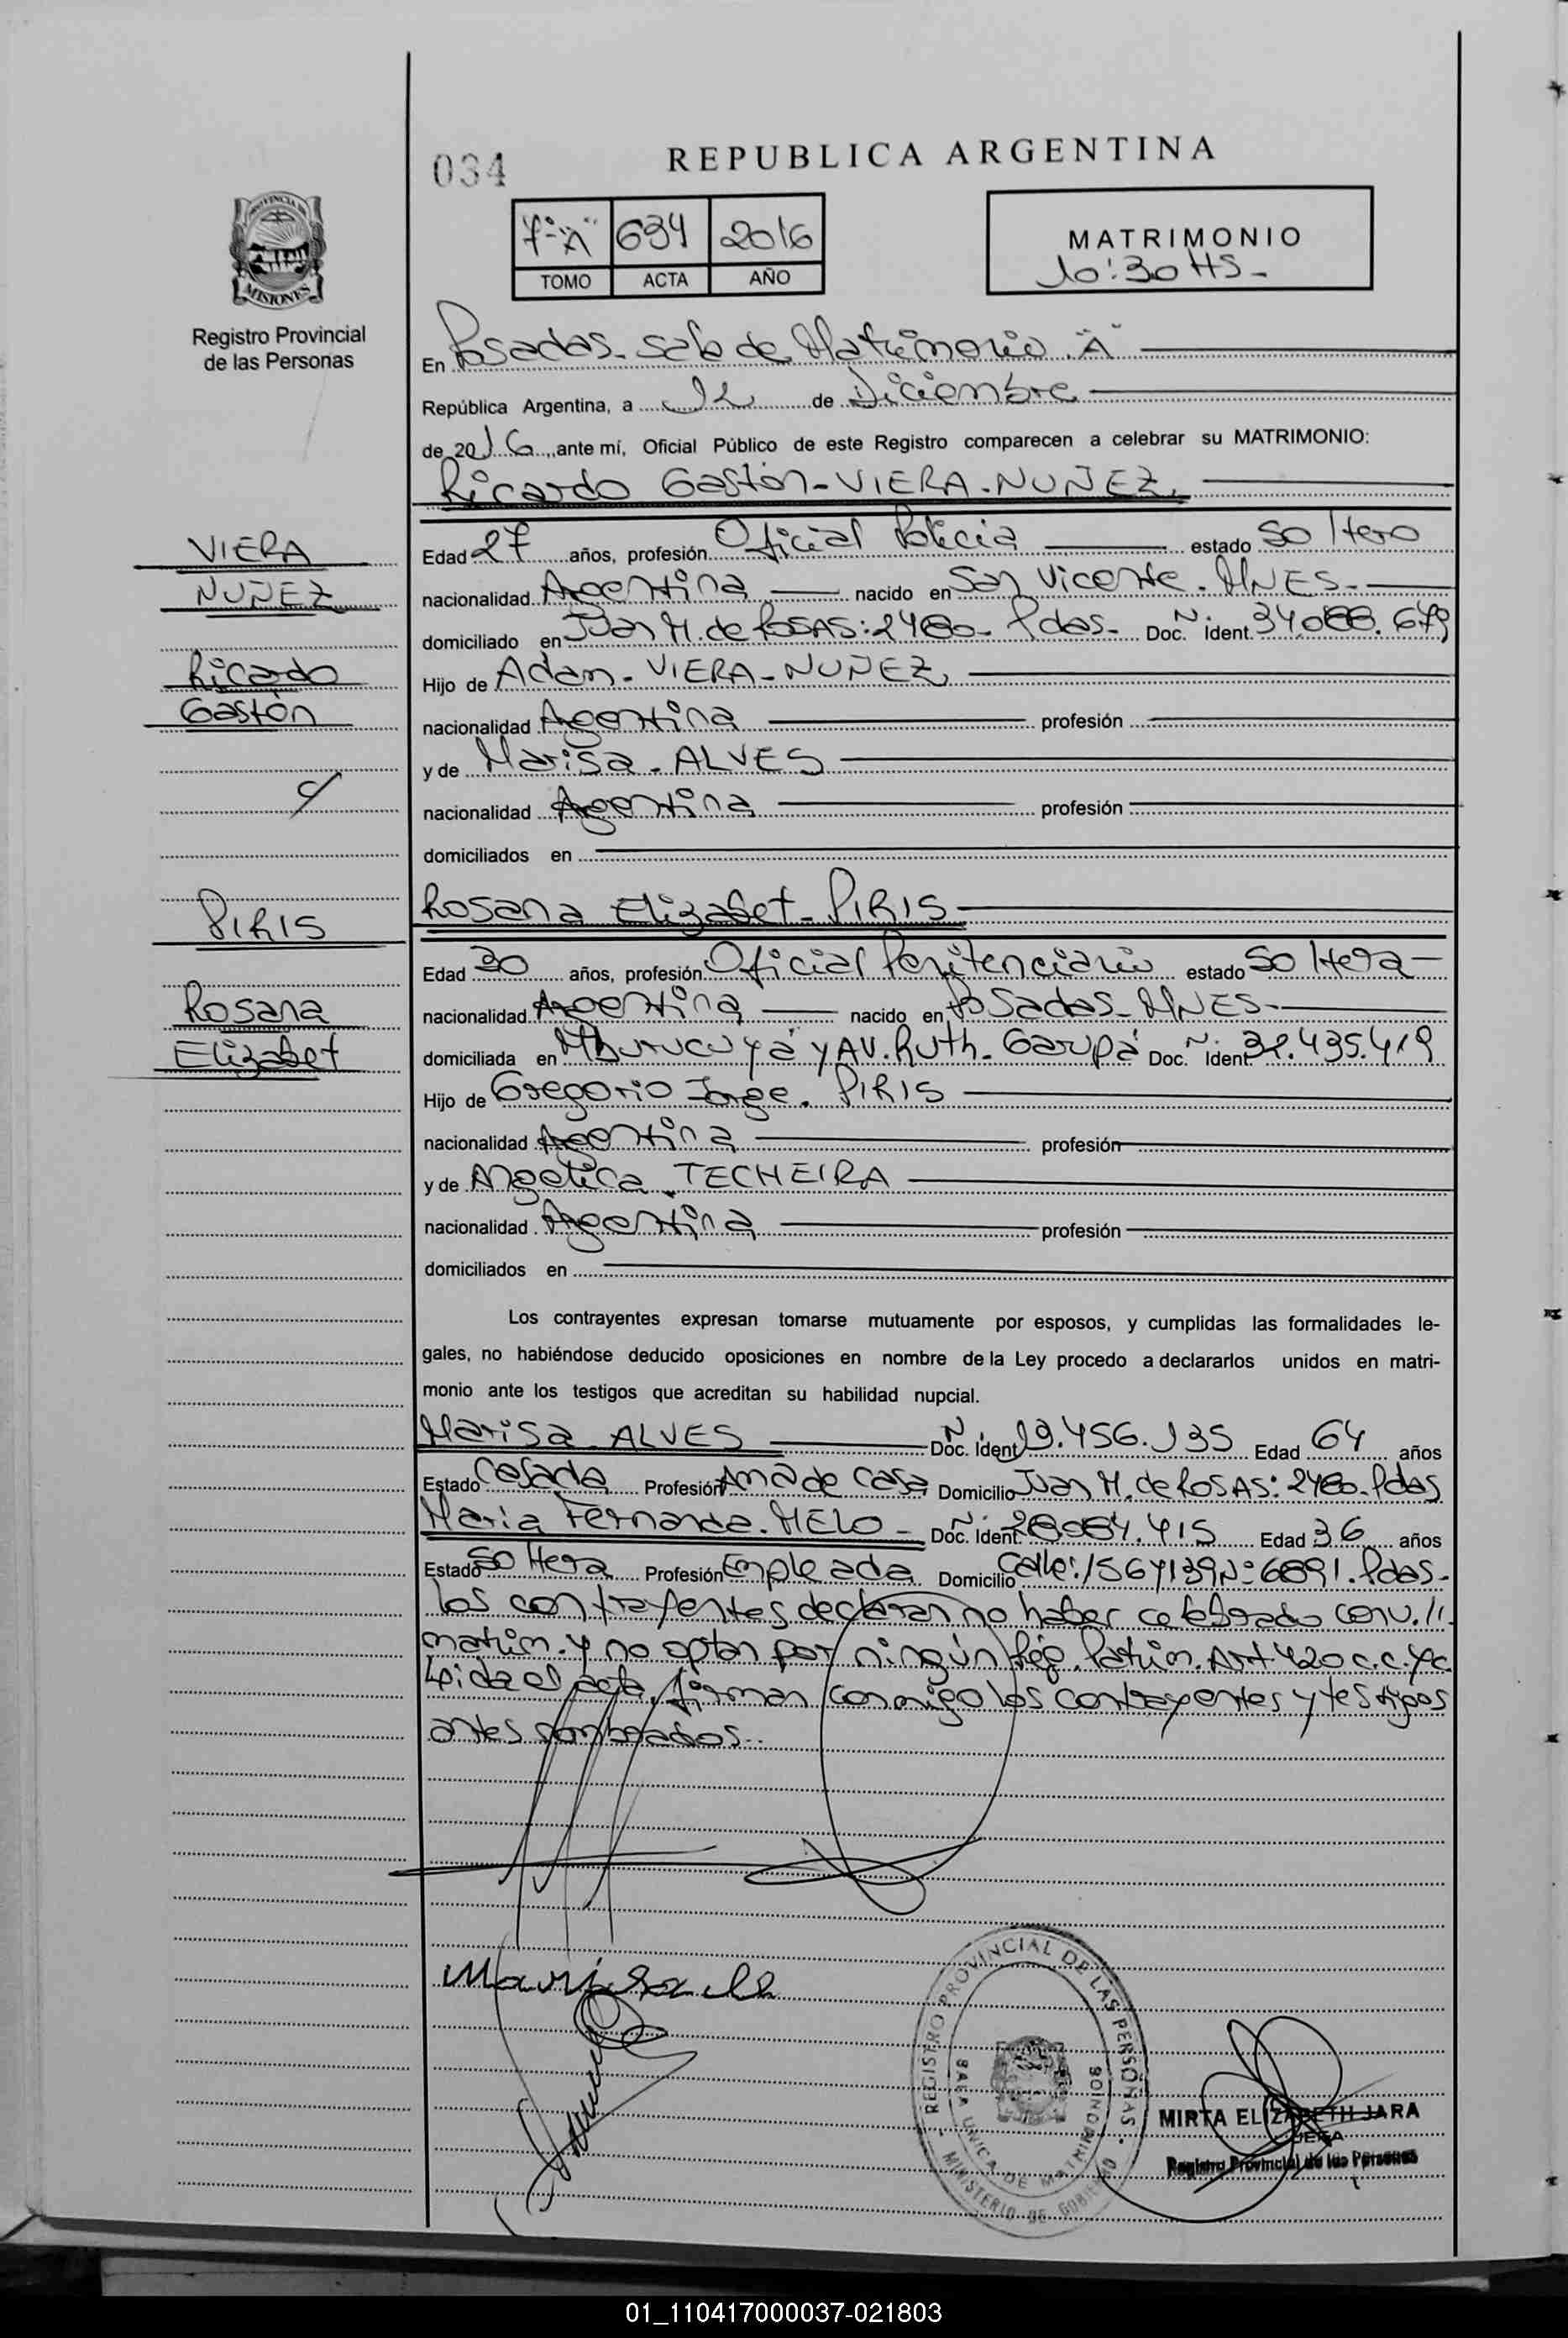 034
REPUBLICA ARGENTINA
PROVINCIA DE
MISIONES
Registro Provincial
de las Personas
7º "A" 634 2016
TOMO ACTA AÑO
MATRIMONIO
10:30 HS-
En Posadas- Sala de Matrimonio "A"
República Argentina, a 12 de Diciembre
de 2016, ante mí, Oficial Público de este Registro comparecen a celebrar su MATRIMONIO:
Ricardo Gastón- VIERA-NUÑEZ,
VIERA
NUÑEZ
Ricardo
Gastón
c/
PIRIS
Rosana
Elizabet
Edad 27 años, profesión Oficial Policia estado Soltero
nacionalidad Argentina nacido en San Vicente. MNES-
domiciliado en Juan M. de ROSAS: 2480- Pdas- Doc. Nº Ident. 34.088.679
Hijo de Adan- VIERA-NUÑEZ,
nacionalidad Argentina profesión
y de Marisa- ALVES
nacionalidad Argentina profesión
domiciliados en
Rosana Elizabet- PIRIS
Edad 30 años, profesión Oficial Penitenciario estado Soltera-
nacionalidad Argentina nacido en Posadas- MNES-
domiciliada en Mburucuyá y AV. Ruth- Garupá Doc. Nº Ident. 32.435.419
Hijo de Gregorio Jorge. PIRIS
nacionalidad Argentina profesión
y de Angelica. TECHEIRA
nacionalidad Argentina profesión
domiciliados en
Los contrayentes expresan tomarse mutuamente por esposos, y cumplidas las formalidades le-
gales, no habiéndose deducido oposiciones en nombre de la Ley procedo a declararlos unidos en matri-
monio ante los testigos que acreditan su habilidad nupcial.
Marisa- ALVES Doc. Nº Ident. 19.456.135 Edad 64 años
Estado Casada Profesión Ama de Casa Domicilio Juan M. de ROSAS: 2480- Pdas
María Fernanda. MELO- Doc. Nº Ident. 28.084.415 Edad 36 años
Estado Soltera Profesión Empleada Domicilio Calle: 156 y 139 Nº 6891. Pdas-
Los contrayentes declaran no haber celebrado conv. //
matrim. y no optan por ningún Rég. Patrim. Art 420 c.c. y c.
Leida el acta, firman conmigo los contrayentes y testigos
antes nombrados..
REGISTRO PROVINCIAL DE LAS PERSONAS
SALA UNICA DE MATRIMONIOS
MINISTERIO DE GOBIERNO
MIRTA ELIZABETH JARA
JEFA
Registro Provincial de las Personas
01_110417000037-021803